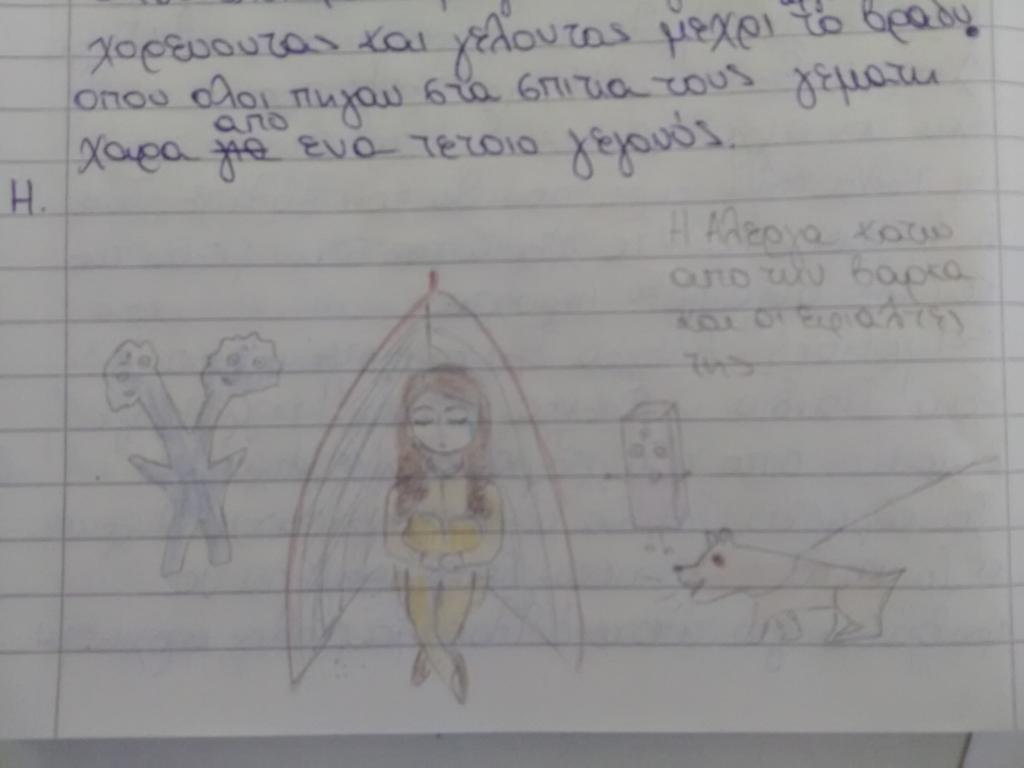 χορευοντας και γελοντας μεχρι το βραδυ.
οπου ολοι πηγαν στα σπιτια τους γεματη
απο
χαρα για ενα τετοιο γεγονός.
Η.
Η Αλεργια κατω
απο την βαρκα
και οι εφιαλτες
της